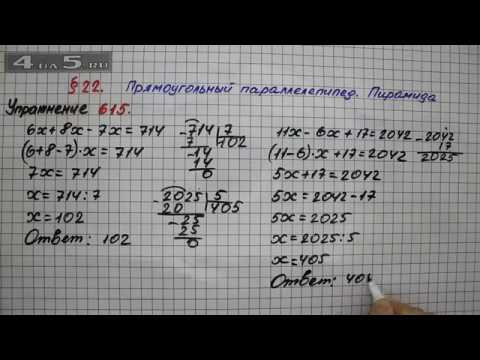 4 на 5.RU
§22. Прямоугольный параллелепипед. Пирамида
Упражнение 615.
6x+8x-7x=714
(6+8-7)·x=714
7x=714
x=714:7
x=102
Ответ: 102
-714 7
7 102
-14
14
0
-2025 5
20 405
-25
25
0
11x-6x+17=2042
(11-6)·x+17=2042
5x+17=2042
5x=2042-17
5x=2025
x=2025:5
x=405
Ответ: 40
-2042
17
2025